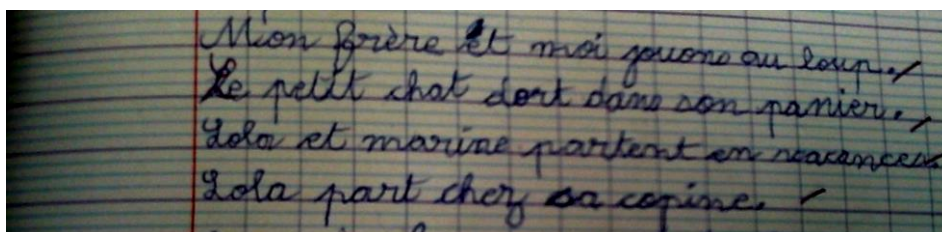 Mon frère et moi jouons au loup.
Le petit chat dort dans son panier.
Lola et marine partent en vacances
Lola part chez sa copine.